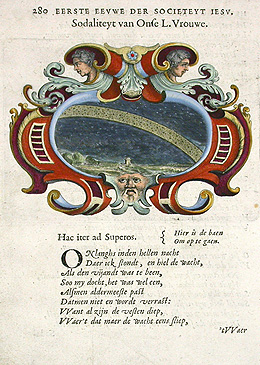 280 EERSTE EEVWE DER SOCIETEYT IESV.
Sodaliteyt van Onse L. Vrouwe.
Hac iter ad Superos.
{ Hier is de baen
Om op te gaen.
ONlanghs inden hellen nacht
Daer ick stondt, en hiel de wacht,
Als den vijandt was te been,
Soo my docht, het was wel een,
Alsmen aldermeeste past
Datmen niet en worde verrast:
VVant al zijn de vesten diep,
VVaer't dat maer de wacht eens sliep,
'tVVaer